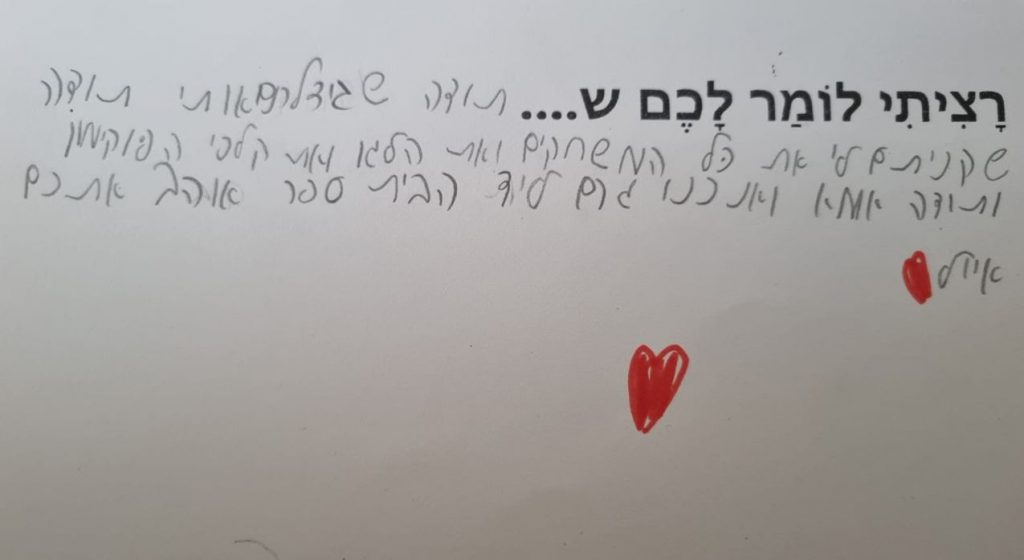 רָצִיתִי לוֹמַר לָכֶם ש.... תודה שגידלתם אותי תודה
שקניתם לי את כל המשחקים ואת הלגו ואת קלפי הפוקימון
ותודה אמא ואנחנו גרים ליד הבית ספר אוהב אתכם
אייל